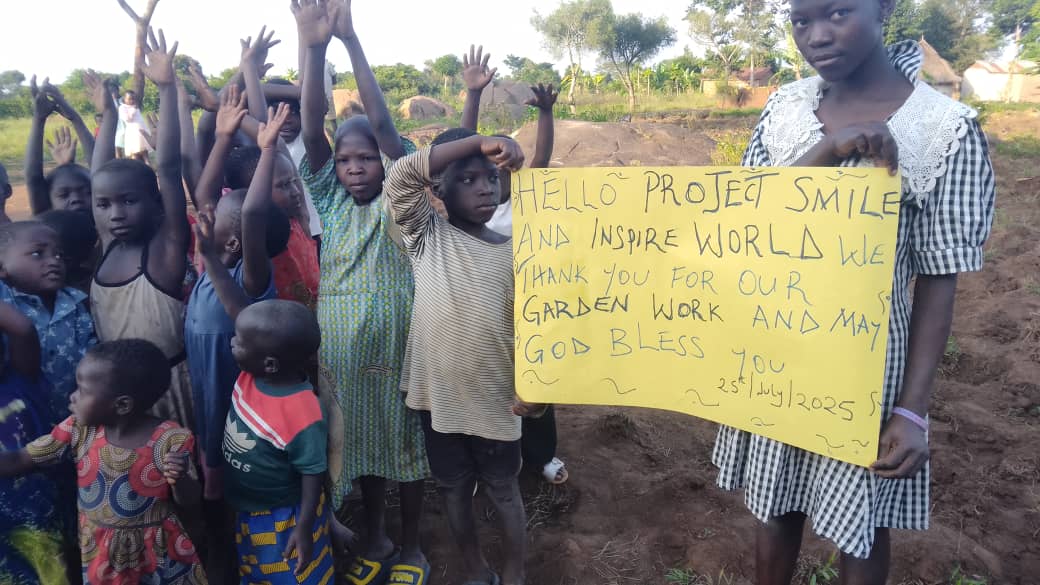 HELLO PROJECT SMILE
AND INSPIRE WORLD WE
THANK YOU FOR OUR
GARDEN WORK AND MAY
GOD BLESS YOU
25th/July/2025
adidas